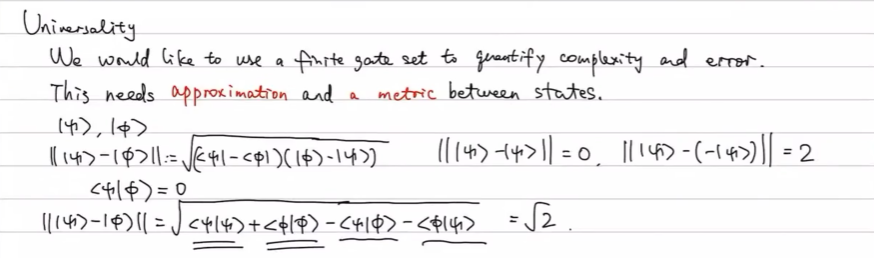 Universality
We would like to use a finite gate set to quantify complexity and error.
This needs approximation and a metric between states.
|ψ⟩, |ϕ⟩
|||ψ⟩-|ϕ⟩|| := √(⟨ψ|-⟨ϕ|)(|ϕ⟩-|ψ⟩) |||ψ⟩-|ψ⟩|| = 0, |||ψ⟩-(-|ψ⟩)|| = 2
⟨ψ|ϕ⟩ = 0
|||ψ⟩-|ϕ⟩|| = √⟨ψ|ψ⟩+⟨ϕ|ϕ⟩-⟨ψ|ϕ⟩-⟨ϕ|ψ⟩ = √2.